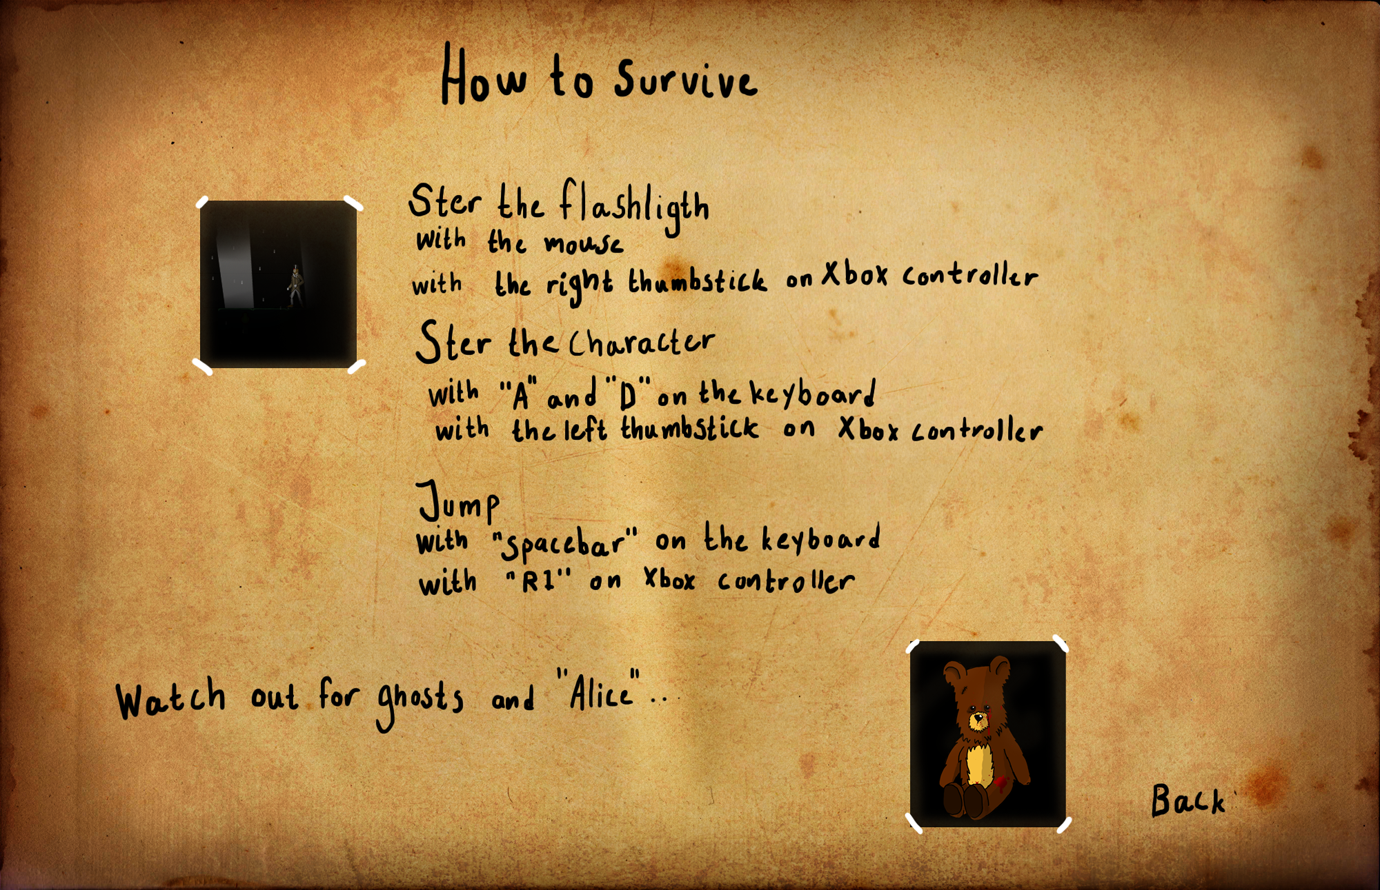 How to Survive
Ster the flashligth
with the mouse
with the right thumbstick on Xbox controller
Ster the Character
with "A" and "D" on the keyboard
with the left thumbstick on Xbox controller
Jump
with "spacebar" on the keyboard
with "R1" on Xbox controller
Watch out for ghosts and "Alice"..
Back